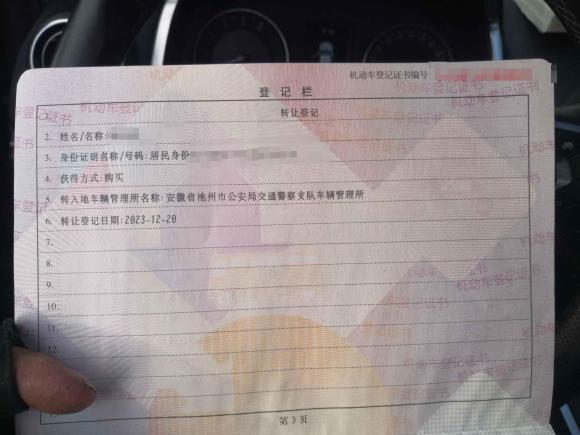 机动车登记证书编号
登记栏
转让登记
2. 姓名/名称:
3. 身份证明名称/号码:居民身份
4. 获得方式:购买
5. 转入地车辆管理所名称:安徽省池州市公安局交通警察支队车辆管理所
6. 转让登记日期:2023-12-20
7.
8.
9.
10.
11.
12.
第3页